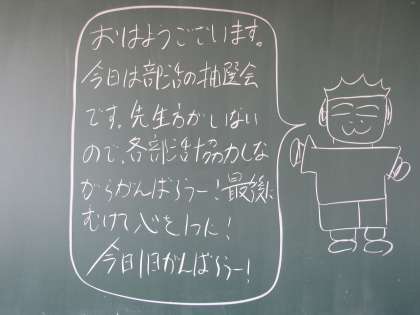 おはようございます。
今日は部活の抽選会
です。先生方がいない
ので、各部活協力しな
がらがんばろうー!最後に
むけて心を1つに!
今日1日がんばろうー!